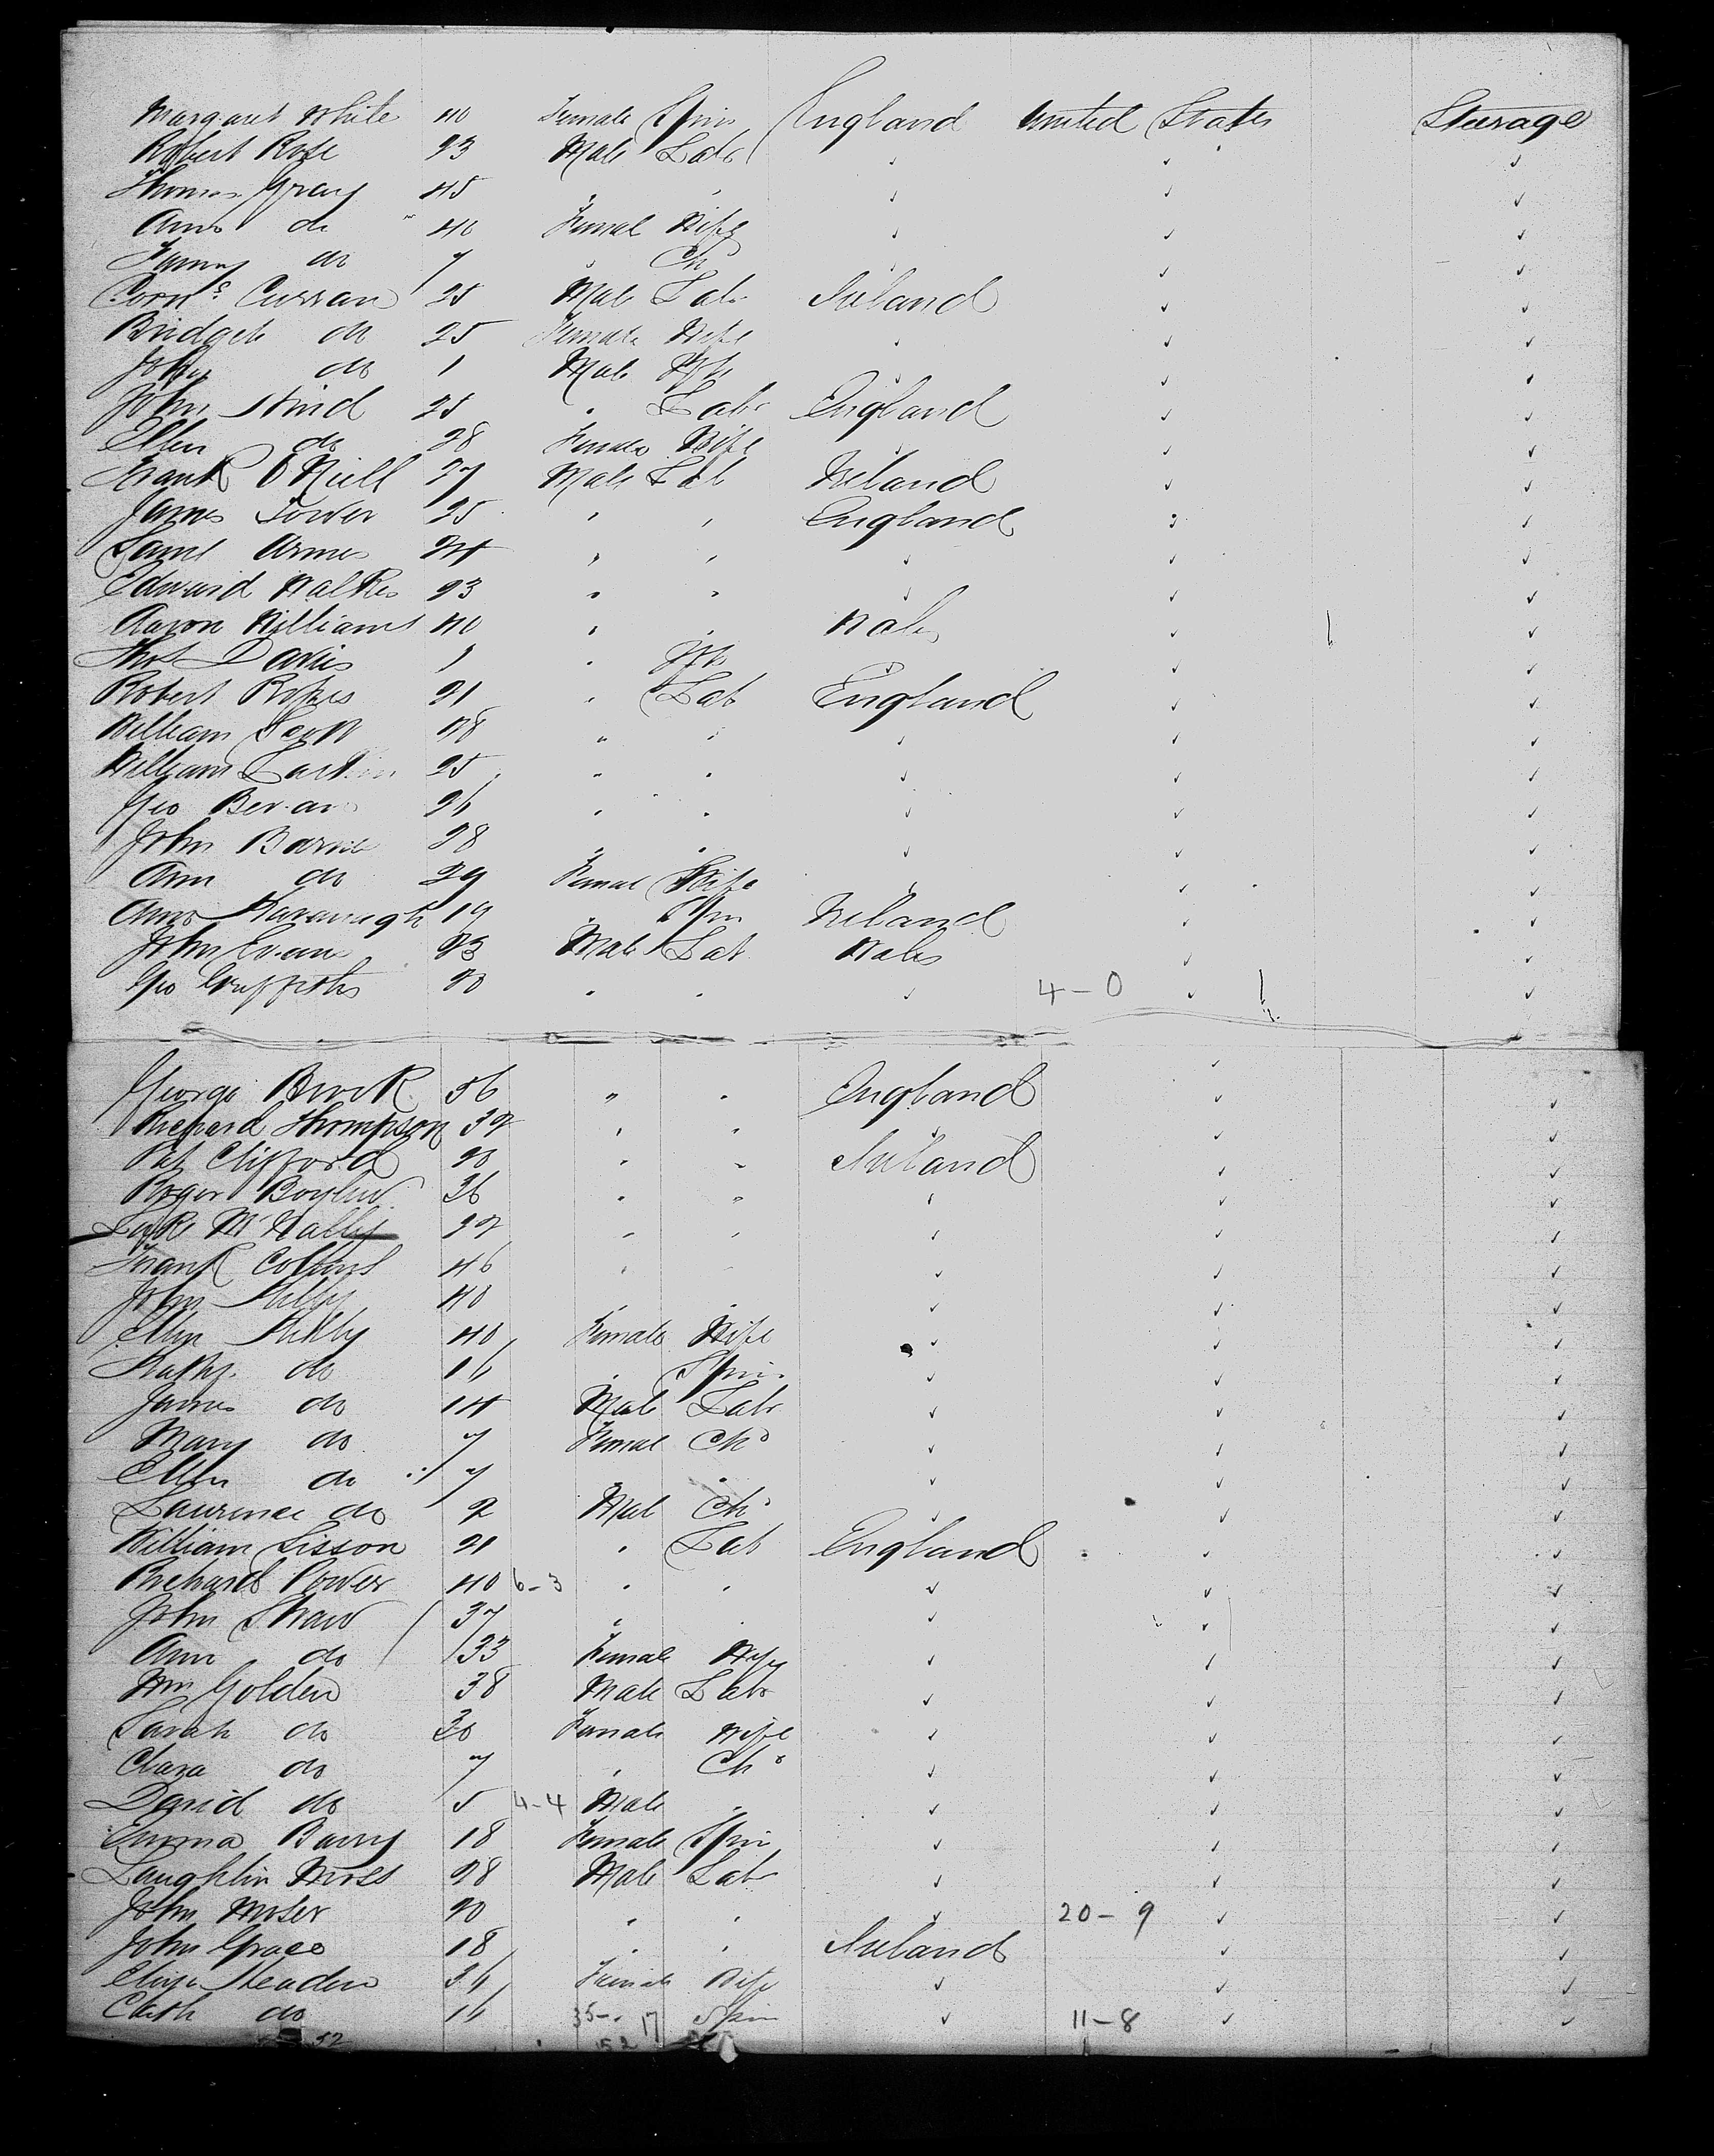 Margaret White 40 Female Spin England United States Steerage
Robert Rose 23 Male Labr ✓ ✓ ✓
Thomas Gray 45 " " ✓ ✓ ✓
Ann do 40 Femal Wife ✓ ✓ ✓
Fanny do 7 " Chd ✓ ✓ ✓
Corns. Curran 25 Male Labr Ireland ✓ ✓
Bridget do 25 Female Wife ✓ ✓ ✓
John do 1 Male Inft ✓ ✓ ✓
John Hind 25 " Labr England ✓ ✓
Ellen do 28 Female Wife ✓ ✓ ✓
Frank O Niell 27 Male Lab Ireland ✓ ✓
James Tower 25 " " England ✓ ✓
Saml Armes 24 " " ✓ ✓ ✓
Edward Walker 23 " " ✓ ✓ ✓
Aaron Williams 40 " " Wales ✓ ✓
Thos Davies 1 " Inf ✓ ✓
Robert 21 " Lab England ✓ ✓
William Scott 48 " " ✓ ✓ ✓
William Larkin 25 " " ✓ ✓ ✓
Geo Bevan 26 " " ✓ ✓ ✓
John Barnes 28 " " ✓ ✓ ✓
Ann do 29 Femal Wife ✓ ✓ ✓
Ann Kavanagh 19 " Spin Ireland ✓ ✓
John Evans 23 Male Lab Wales ✓ ✓
Geo Griffiths 20 " " ✓ 4-0 ✓ ✓
George Brook 56 " " England ✓ ✓
Richard Thompson 32 " " ✓ ✓ ✓
Pat Clifford 20 " " Ireland ✓ ✓
Roger Boylan 36 " " ✓ ✓ ✓
Luke McNally 22 " " ✓ ✓ ✓
Frank Collins 46 " " ✓ ✓ ✓
John Kelly 40 " " ✓ ✓ ✓
Ellen Kelly 40 Female Wife ✓ ✓ ✓
Kathe. do 16 " Spin ✓ ✓ ✓
James do 14 Male Labr ✓ ✓ ✓
Mary do 7 Femal Chd ✓ ✓ ✓
Ellen do 7 " " ✓ ✓ ✓
Laurence do 2 Mal Chd ✓ ✓ ✓
William Sisson 21 " Lab England ✓ ✓
Richard Power 40 6-3 " " ✓ ✓ ✓
John Shaw 37 " " ✓ ✓ ✓
Ann do 33 Female Wife ✓ ✓ ✓
Wm Golden 38 Male Labr ✓ ✓ ✓
Sarah do 30 Female Wife ✓ ✓ ✓
Clara do 7 " Chd ✓ ✓ ✓
David do 5 4-4 Male " ✓ ✓ ✓
Emma Barry 18 Female Spin ✓ ✓ ✓
Laughlin Moss 28 Male Labr ✓ ✓ ✓
John Moser 20 " " ✓ 20-9 ✓ ✓
John Grace 18 " " Ireland ✓ ✓
Eliza Headen 36 Female Wife ✓ ✓ ✓
Cath do 16 35-. 17 Spin ✓ 11-8 ✓ ✓
52 52